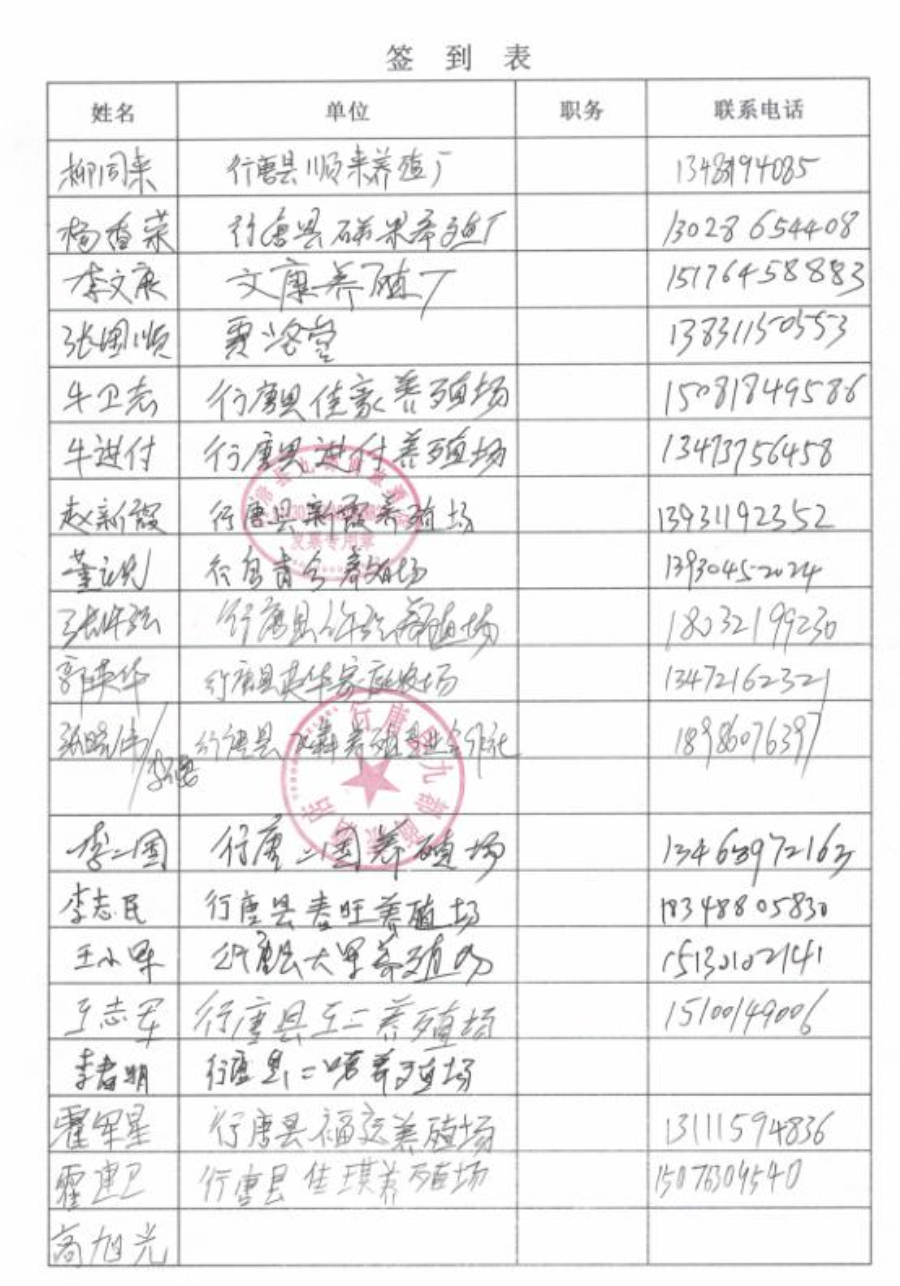 签 到 表
姓名 单位 职务 联系电话
柳同来 行唐县顺来养殖厂
杨香荣 行唐县硕果养殖厂 13028654408
李文康 文康养殖厂 15176458883
张周顺 贾洛营 13831150553
牛卫志 行唐县佳豪养殖场 15081849586
牛进付 行唐县进付养殖场 13473756458
赵新霞 行唐县新霞养殖场 13931192352
董 养殖场 13930452024
张许强 行唐县许强养殖场 18032199230
郭英华 行唐县英华家庭农场 13472162321
行唐县 养殖专业合作社 18986076397
李二国 行唐二国养殖场
李志民 行唐县春旺养殖场 18348805830
王小军 行唐县大军养殖场 15130102141
王志军 行唐县王二养殖场 15100149006
李春明 行唐县 养殖场
霍军星 行唐县福运养殖场 13111594836
霍建卫 行唐县佳琪养殖场 15076309540
高旭光
发票专用章